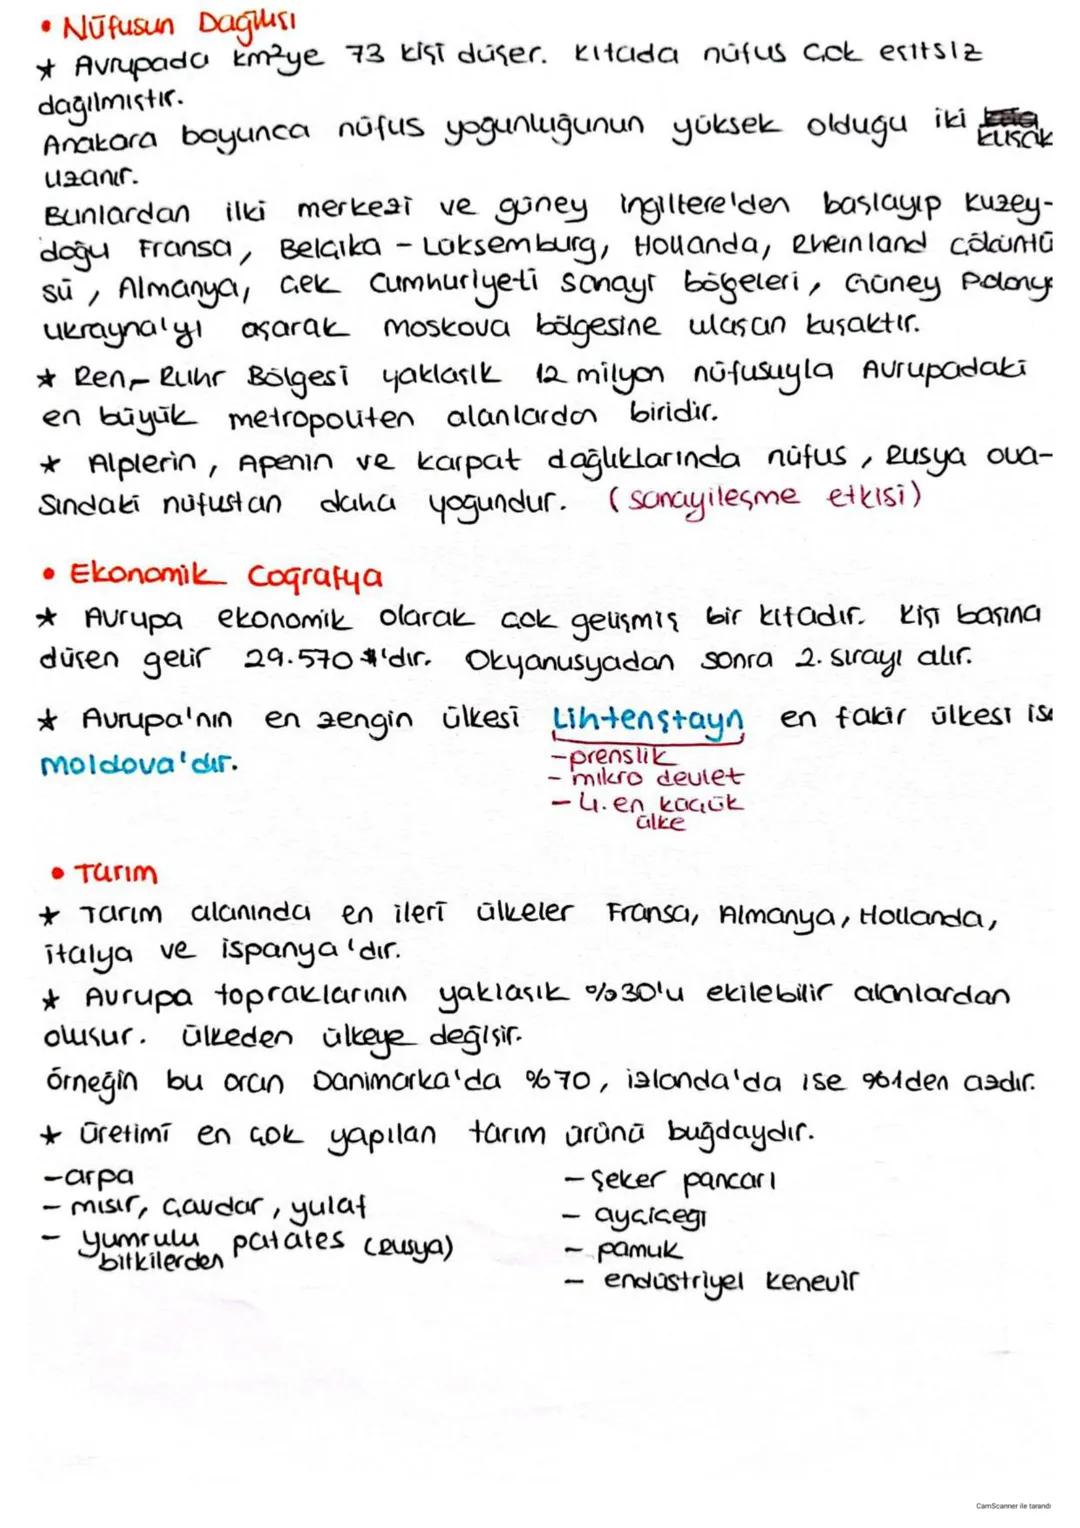 • Nüfusun Dağılışı
* Avrupada km²ye 73 kişi düşer. Kıtada nüfus çok eşitsiz
dağılmıştır.
Anakara boyunca nüfus yoğunluğunun yüksek olduğu iki kuşak
uzanır.
Bunlardan ilki merkezi ve güney ingiltere'den başlayıp kuzey-
doğu Fransa, Belçika - Lüksemburg, Hollanda, Rheinland çöküntü
sü, Almanya, Çek Cumhuriyeti sanayi bölgeleri, Güney Polonya
ukrayna'yı aşarak moskova bölgesine ulaşan kuşaktır.
* Ren - Ruhr Bölgesi yaklaşık 12 milyon nüfusuyla Avrupadaki
en büyük metropoliten alanlardan biridir.
* Alplerin, Apenin ve Karpat dağlıklarında nüfus, Rusya ova-
sındaki nüfustan daha yoğundur. (sanayileşme etkisi)
• Ekonomik Coğrafya
* Avrupa ekonomik olarak çok gelişmiş bir kıtadır. Kişi başına
düşen gelir 29.570 $'dır. Okyanusyadan sonra 2. sırayı alır.
* Avrupa'nın en zengin ülkesi Lihtenştayn en fakir ülkesi ise
moldova'dır.
- prenslik
- mikro devlet
- 4. en küçük
ülke
• Tarım
* Tarım alanında en ileri ülkeler Fransa, Almanya, Hollanda,
italya ve ispanya'dır.
* Avrupa topraklarının yaklaşık %30'u ekilebilir alanlardan
oluşur. ülkeden ülkeye değişir.
Örneğin bu oran Danimarka'da %70, izlanda'da ise %1den azdır.
* üretimi en çok yapılan tarım ürünü buğdaydır.
- arpa
- mısır, çavdar, yulaf
- yumrulu bitkilerden patates (Rusya)
- şeker pancarı
- ayçiçeği
- pamuk
- endüstriyel kenevir
CamScanner ile tarandı